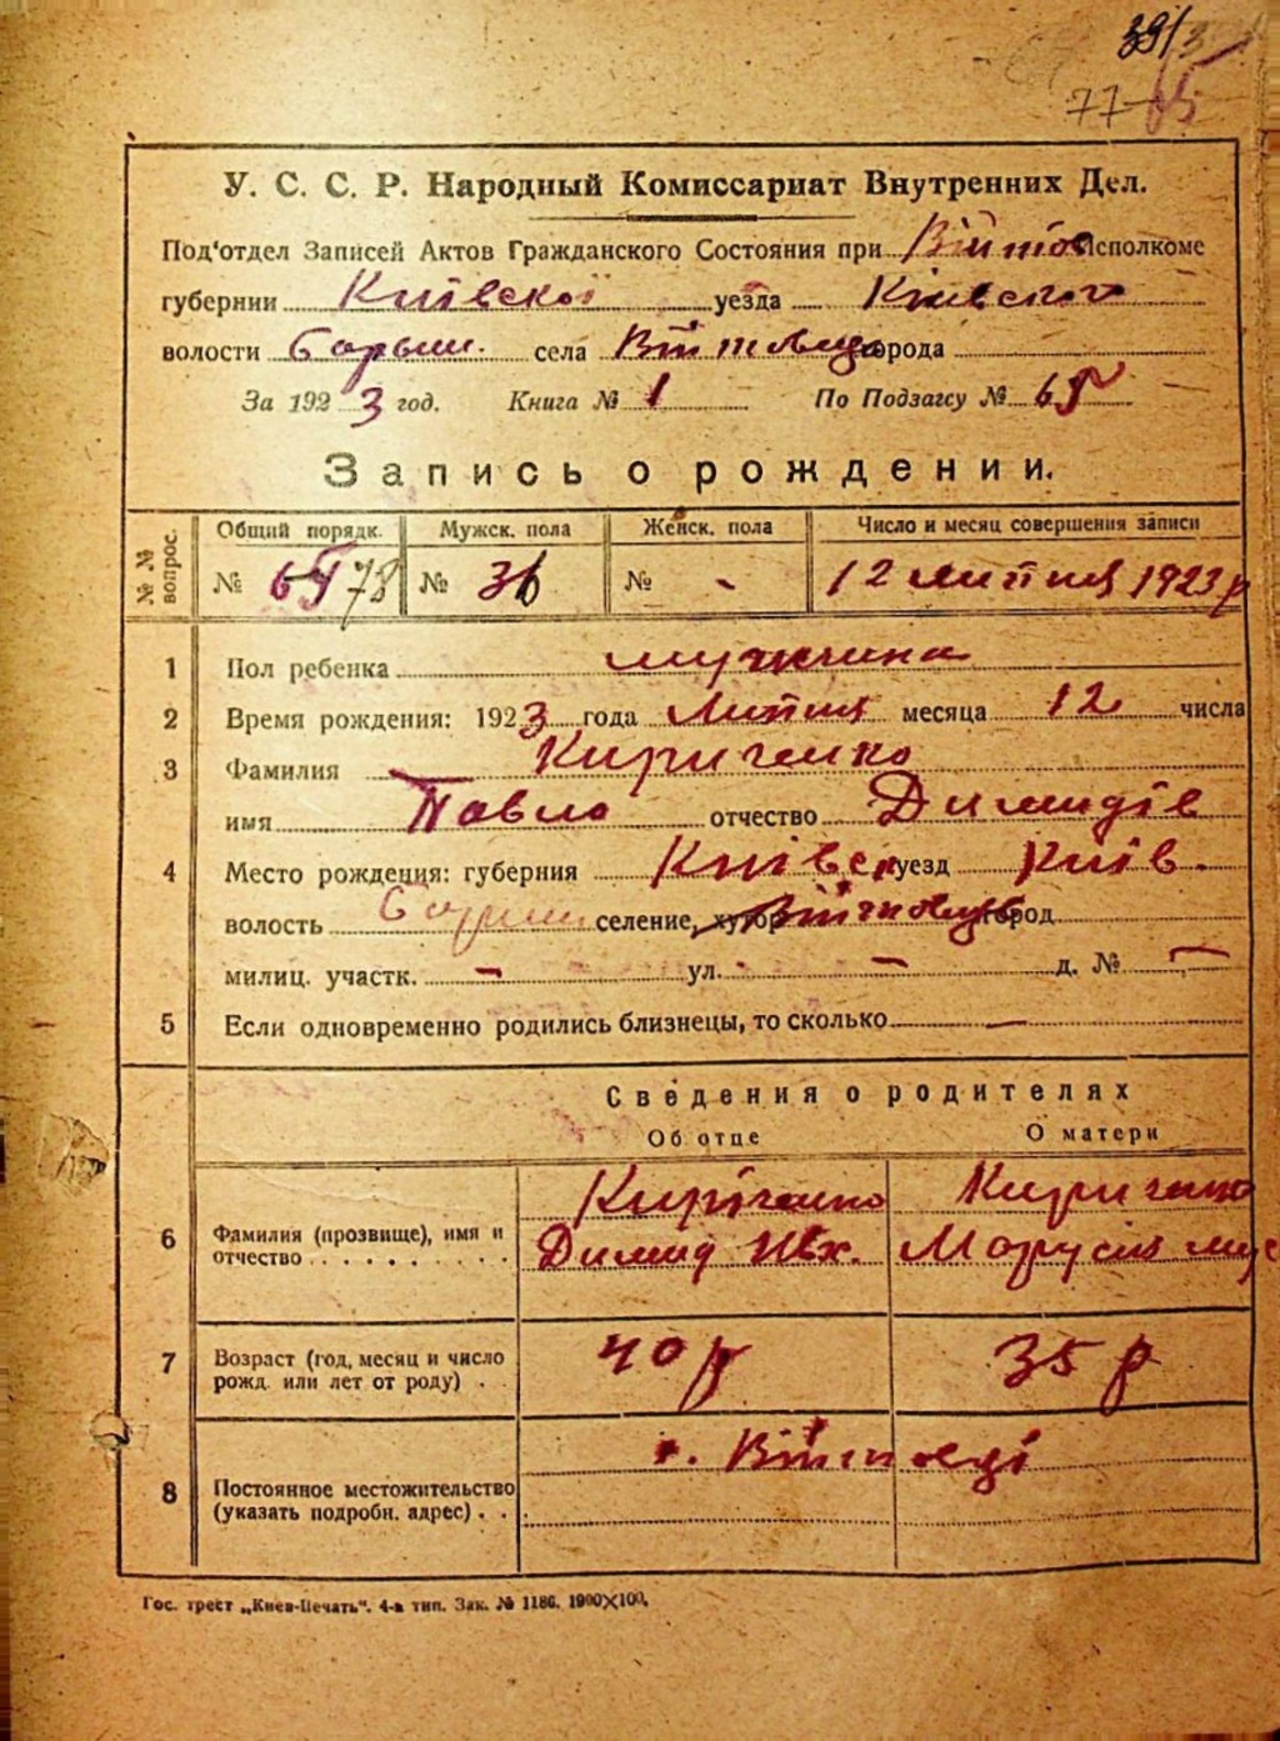 39/3
77 65
У. С. С. Р. Народный Комиссариат Внутренних Дел.
Под'отдел Записей Актов Гражданского Состояния при Війтов Исполкоме
губернии Київської уезда Київского
волости Бориш. села Війтовці города
За 1923 год. Книга № 1 По Подзагсу № 65
Запись о рождении.
№ № вопрос. Общий порядк. Мужск. пола Женск. пола Число и месяц совершения записи
№ 65 78 № 36 № - 12 липця 1923 р
1 Пол ребенка мужчина
2 Время рождения: 1923 года Липця месяца 12 числа
3 Фамилия Кириченко
имя Павло отчество Димидів
4 Место рождения: губерния Київськ уезд Київ.
волость Бориш селение, хутор Війтовці город
милиц. участк. — ул. — д. № —
5 Если одновременно родились близнецы, то сколько —
Сведения о родителях
Об отце О матери
6 Фамилия (прозвище), имя и отчество Кириченко Димид Ивх. Кириченко Маруся
7 Возраст (год, месяц и число рожд. или лет от роду) 40 р 35 р
8 Постоянное местожительство (указать подробн. адрес) с. Війтовці
Гос. трест „Киев-Печать“. 4-а тип. Зак. № 1186. 1900×100.